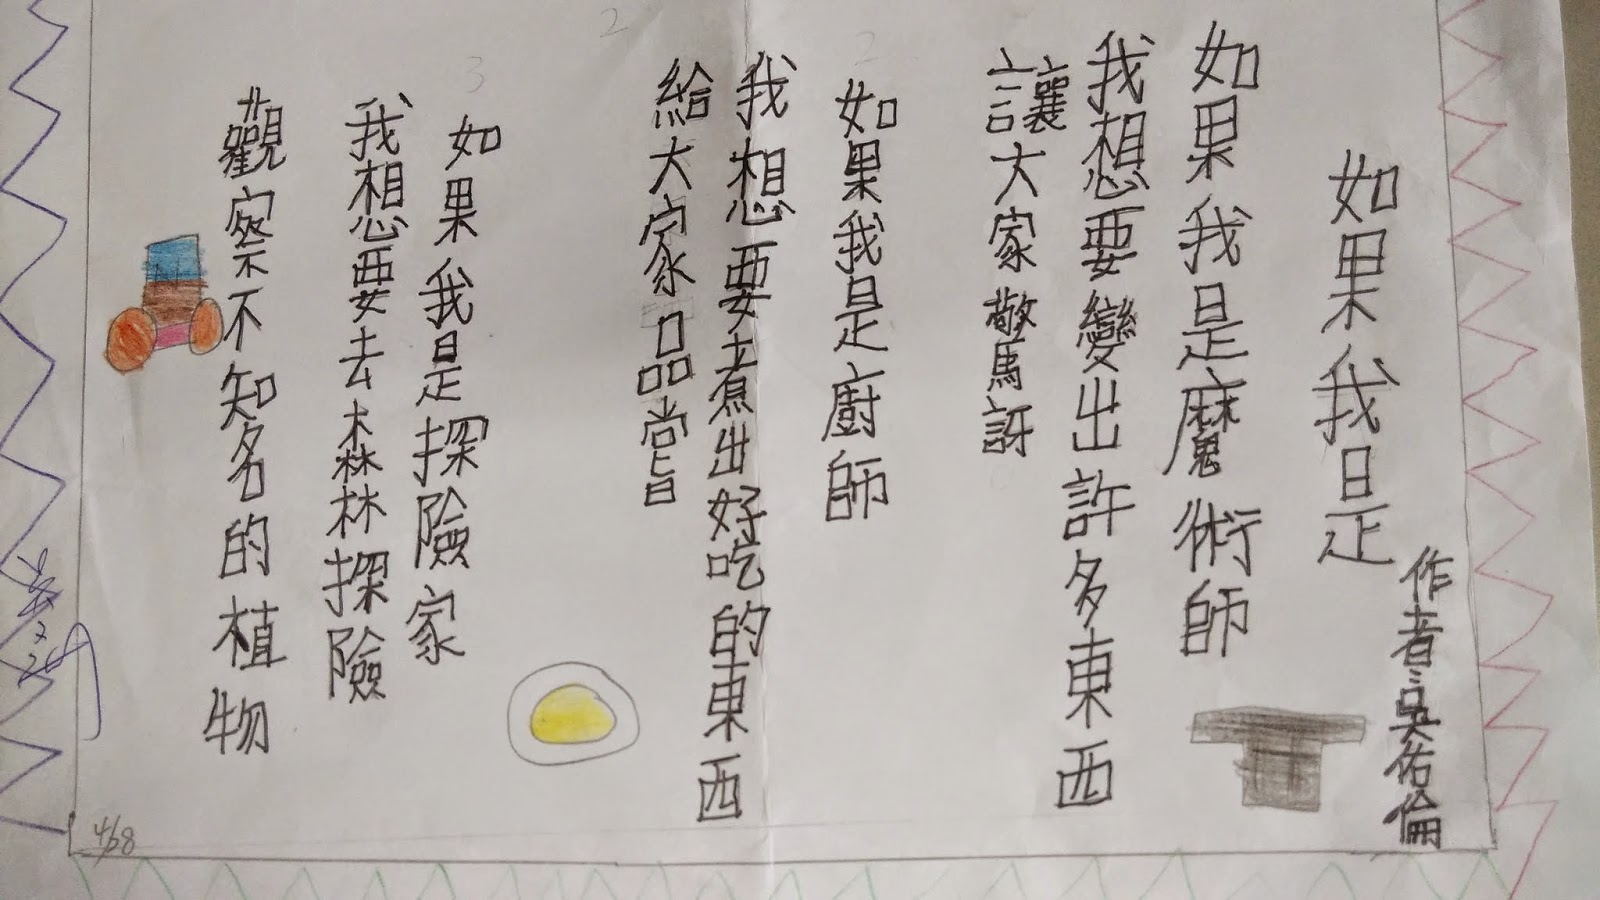 如果我是
作者:吳佑倫
如果我是魔術師
我想要變出許多東西
讓大家驚訝
如果我是廚師
我想要煮出好吃的東西
給大家品嘗
如果我是探險家
我想要去森林探險
觀察不知名的植物
4/28
2
2
3